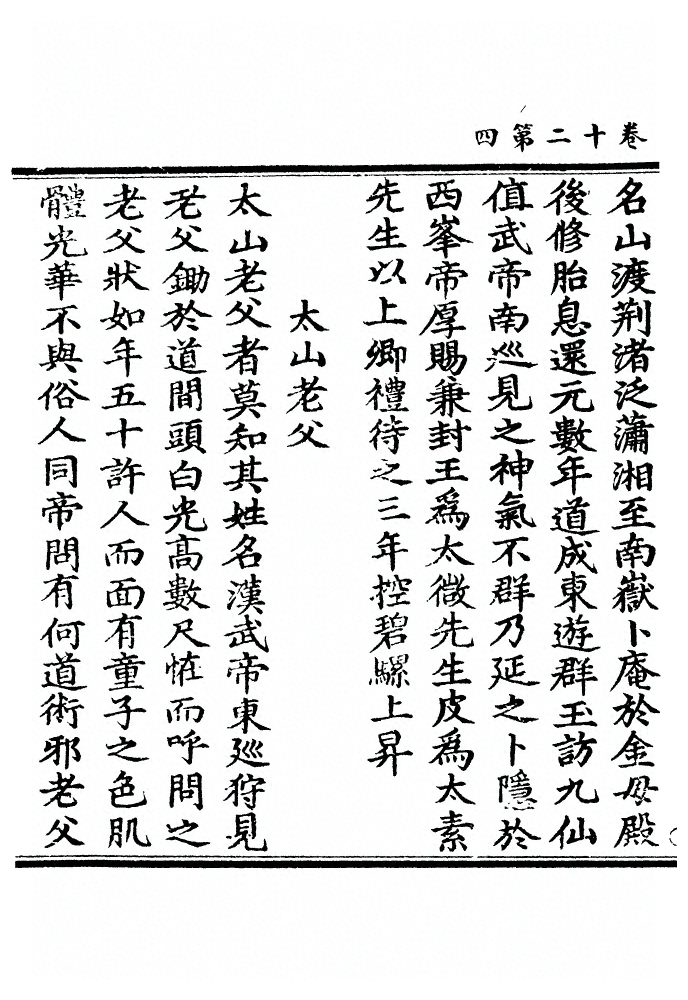 卷十二第四
名山渡荆渚泛瀟湘至南嶽卜庵於金母殿
後修胎息還元數年道成東遊群玉訪九仙
值武帝南巡見之神氣不群乃延之卜隱於
西峯帝厚賜兼封王爲太微先生皮爲太素
先生以上卿禮待之三年控碧騾上昇
太山老父
太山老父者莫知其姓名漢武帝東廵狩見
老父鋤於道間頭白光高數尺恠而呼問之
老父狀如年五十許人而面有童子之色肌
體光華不與俗人同帝問有何道術邪老父